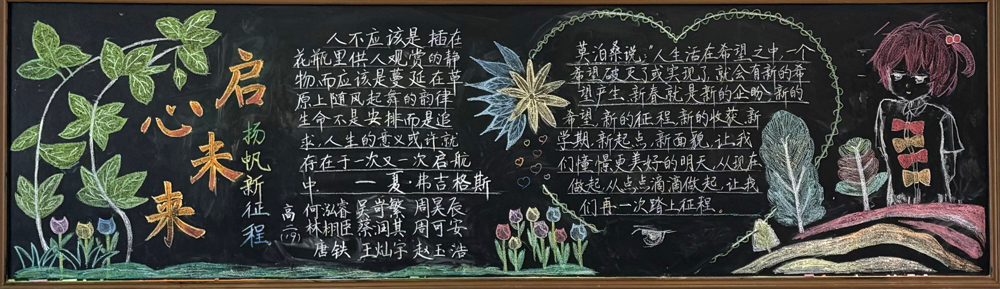 启心未来
扬帆新征程
人不应该是插在
花瓶里供人观赏的静
物,而应该是蔓延在草
原上随风起舞的韵律
生命不是安排而是追
求,人生的意义或许就
存在于一次又一次启航
中 ——夏·弗吉格斯
高二
何泓睿 吴守繁 周昊辰
林栩臣 蔡润其 周可安
唐轶 王灿宇 赵玉浩
莫泊桑说:"人生活在希望之中,一个
希望破灭了或实现了,就会有新的希
望产生、新春就是新的企盼、新的
希望、新的征程、新的收获、新
学期、新起点、新面貌,让我
们憧憬更美好的明天,从现在
做起,从点点滴滴做起,让我
们再一次踏上征程。